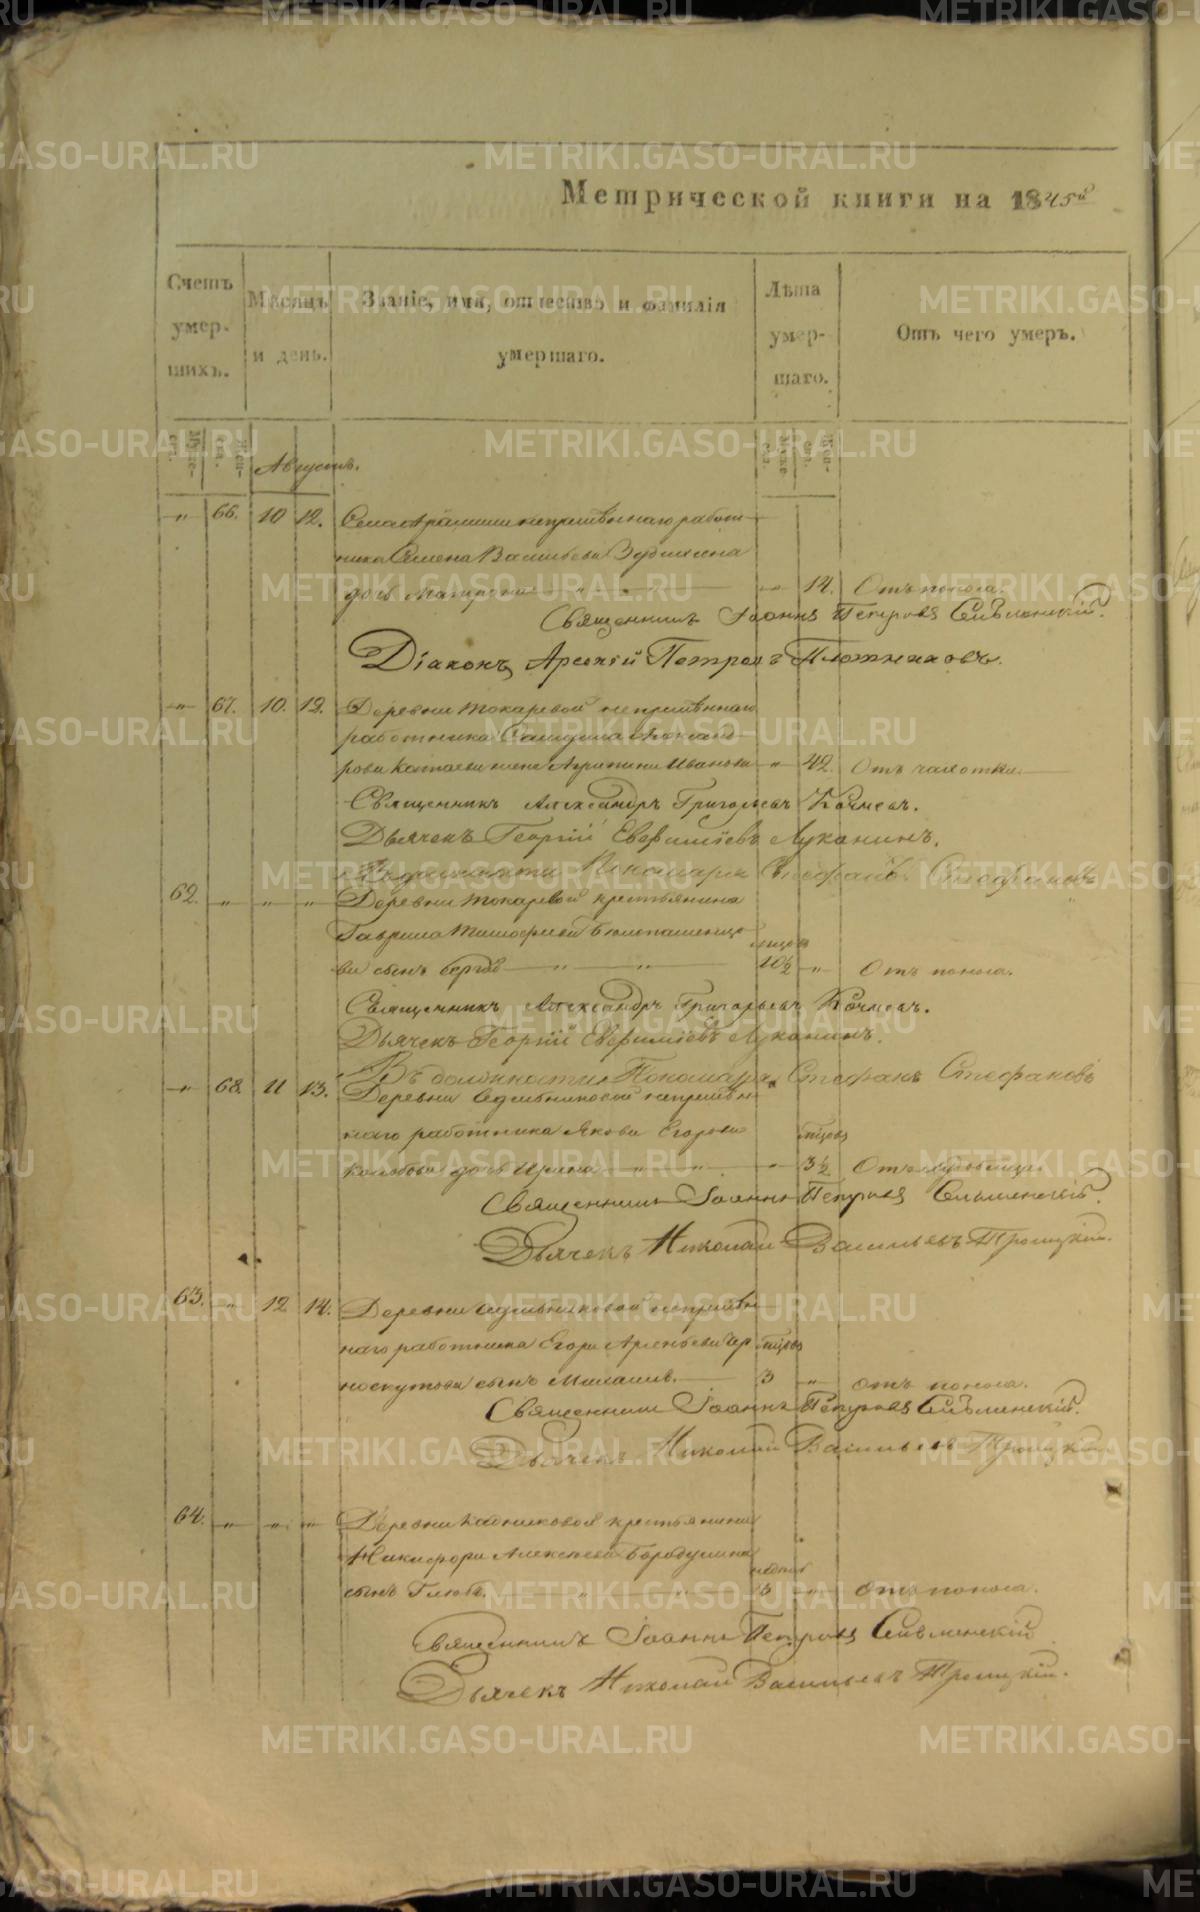 Метрической книги на 1845й
Счетъ умершихъ.
Мѣсяцъ и день.
Званіе, имя, отчество и фамилія умершаго.
Лѣта умершаго.
Отъ чего умеръ.
Августъ.
„ 66. 10 12.
непремѣннаго работ-
ника Семена Васильева
дочь „ „ 14. Отъ поноса.
Священникъ Іоаннъ Петровъ
Діаконъ Арсеній Петровъ Плотниковъ.
„ 67. 10. 12. Деревни Токаревой непремѣннаго
работника Александ-
рова жена Агрипина Иванова „ 42. Отъ чахотки.
Священникъ Александръ Григорьевъ Кочневъ.
Дьячекъ Георгій Евфиміевъ Луканинъ.
Въ должности Пономаря Стефанъ Стефановъ
62. „ „ „ Деревни Токаревой крестьянина
Гаврила Тимофеева
ва сынъ „ „ мѣсяцовъ 10½ „ Отъ поноса.
Священникъ Александръ Григорьевъ Кочневъ.
Дьячекъ Георгій Евфиміевъ Луканинъ.
Въ должности Пономаря Стефанъ Стефановъ
„ 68. 11 13. Деревни непремѣн-
наго работника Якова Егорова мѣсяцов
дочь Ирина „ „ 3½ Отъ
Священникъ Іоаннъ Петровъ
Дьячекъ Николай Васильевъ Троицкій.
63. „ 12 14. Деревни непремѣн-
наго работника Егора Арсеньева Чер- мѣсяцов
носкутова сынъ 3 „ отъ поноса.
Священникъ Іоаннъ Петровъ
Дьячекъ Николай Васильевъ Троицкій
64. „ „ „ Деревни Кадниковой крестьянина
Никифора Алексеева Бородулина
сынъ Глѣбъ. „ „ недѣль 3 „ отъ поноса.
Священникъ Іоаннъ Петровъ
Дьячекъ Николай Васильевъ Троицкій.
METRIKI.GASO-URAL.RU